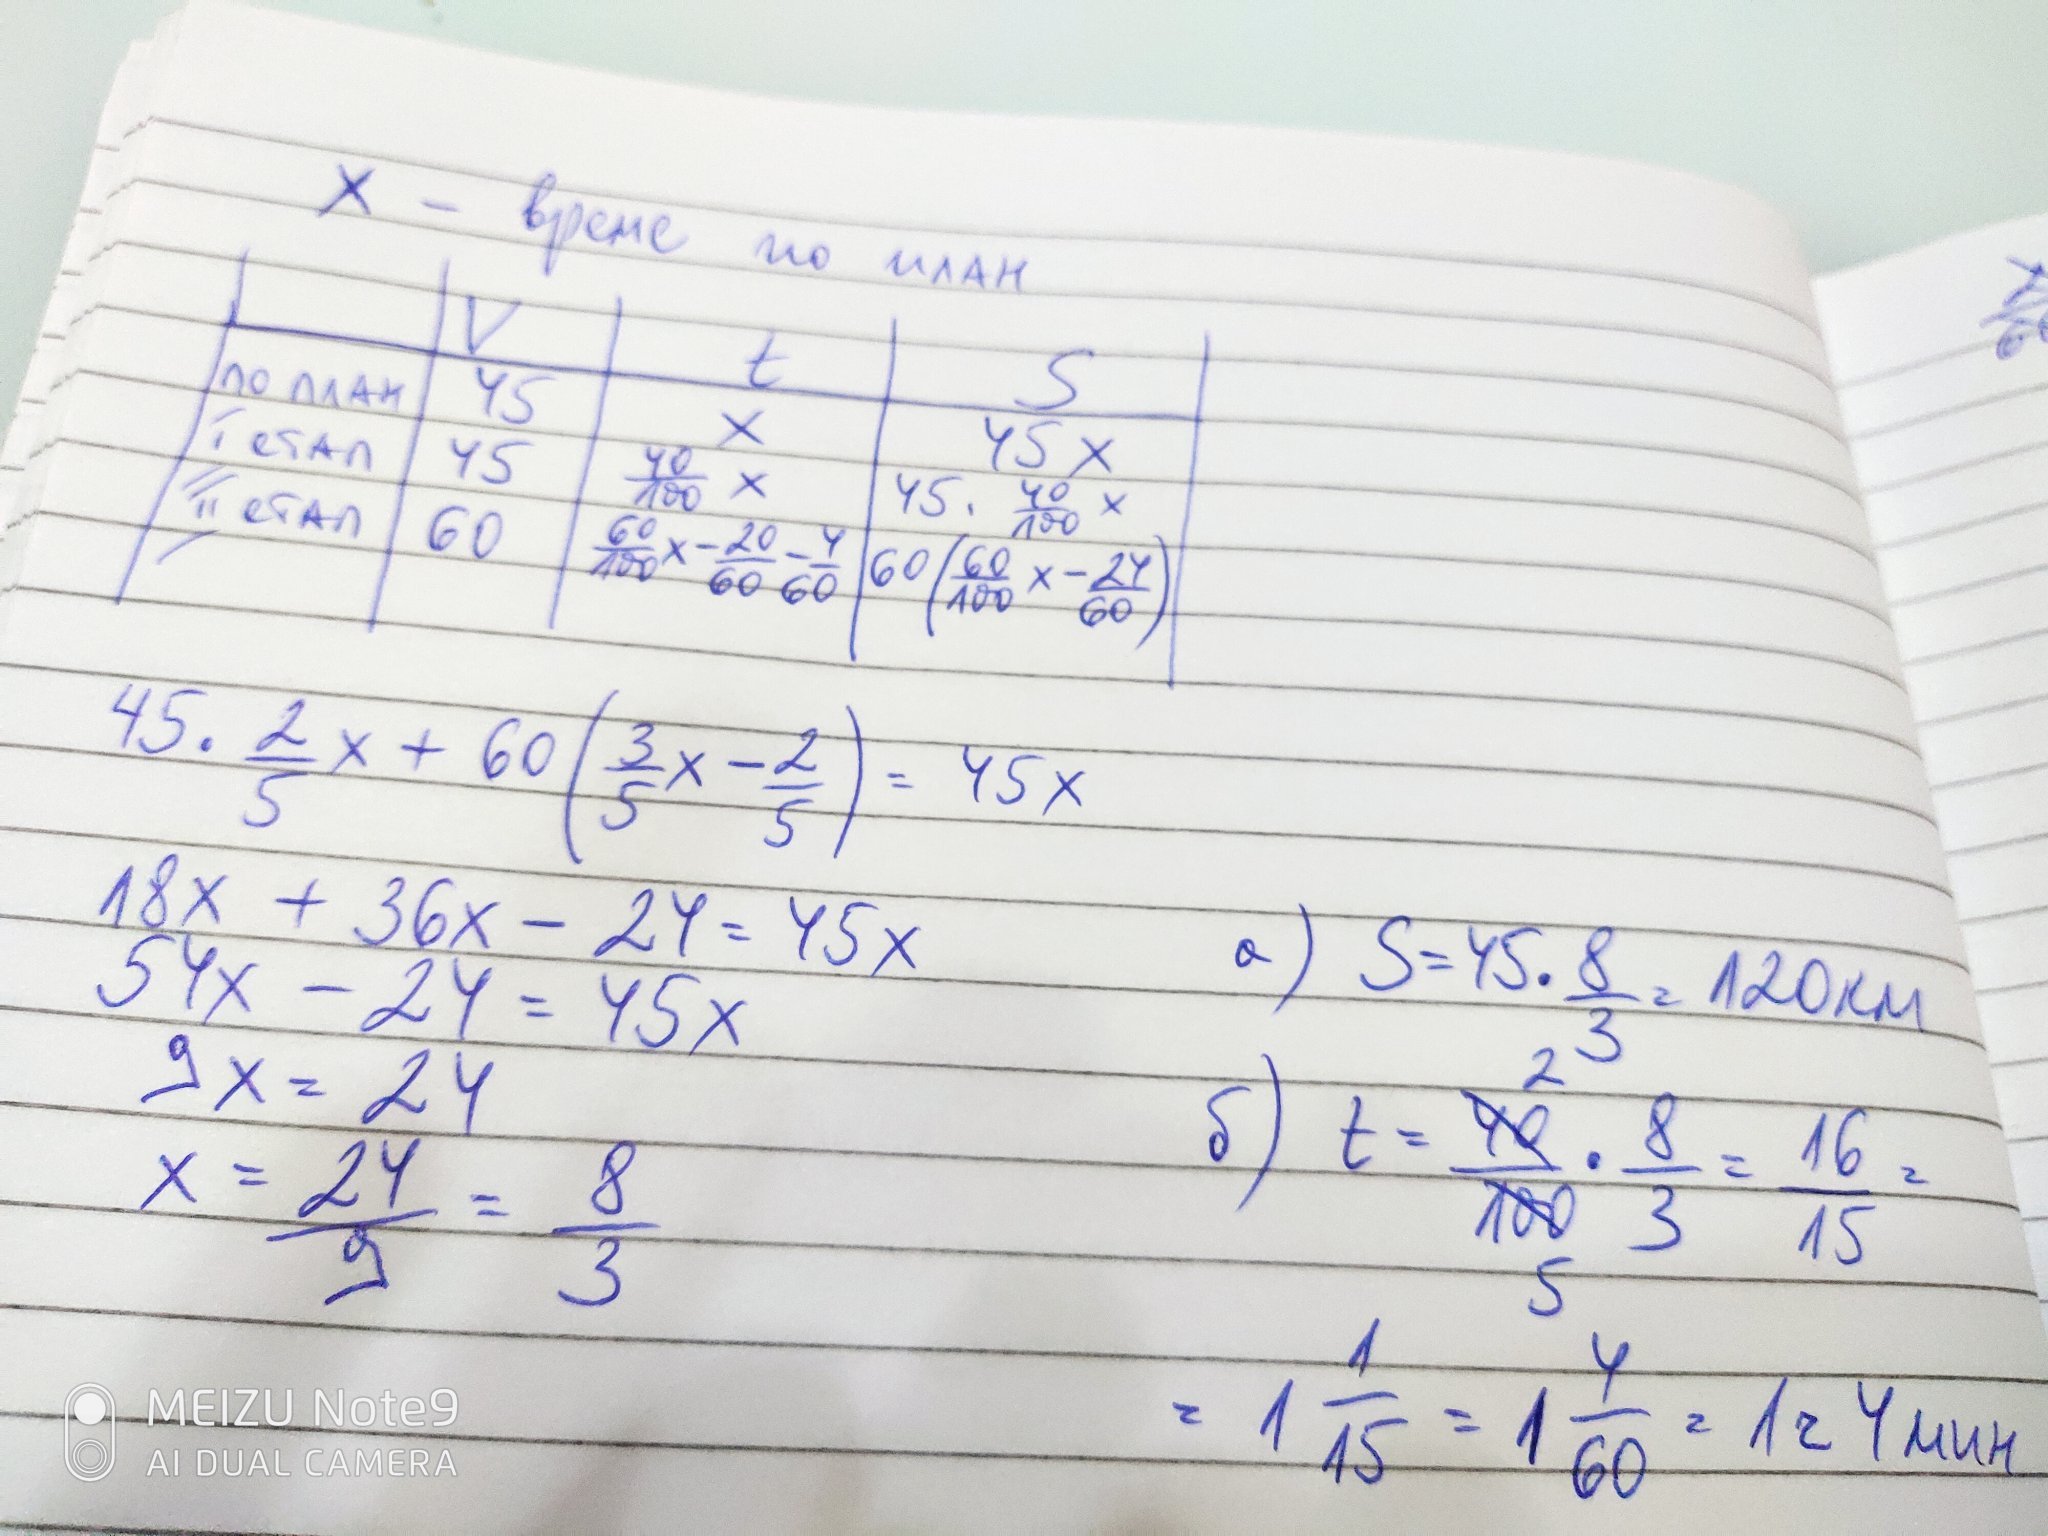 x - време по план
V t S
по план 45 x 45x
I етап 45 40/100 x 45 . 40/100 x
II етап 60 60/100 x - 20/60 - 4/60 60(60/100 x - 24/60)
45 . 2/5 x + 60(3/5 x - 2/5) = 45x
18x + 36x - 24 = 45x
54x - 24 = 45x
9x = 24
x = 24/9 = 8/3
а) S = 45 . 8/3 = 120км
2
б) t = 40/100 . 8/3 = 16/15 =
5
= 1 1/15 = 1 4/60 = 1ч 4мин
MEIZU Note9
AI DUAL CAMERA